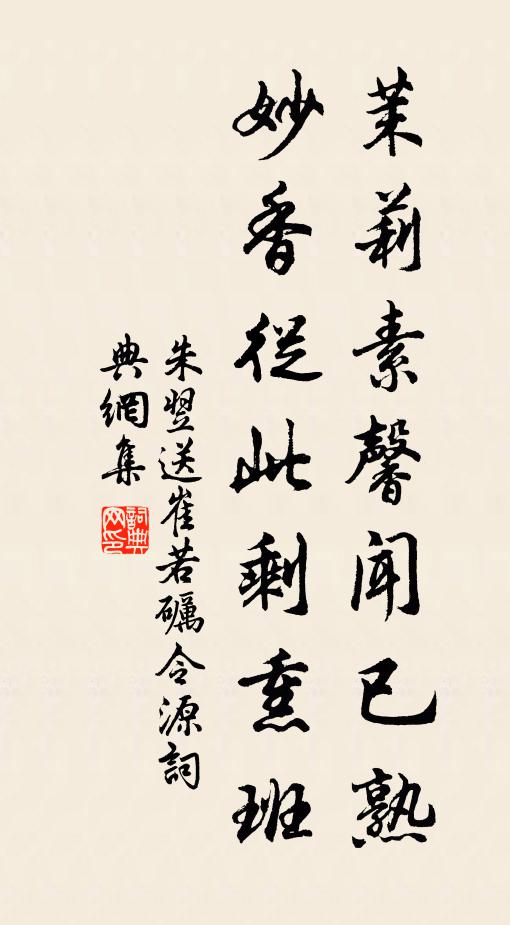 茉莉素馨聞已熟
妙香從此剩熏班
朱翌送崔若礪令源詞
典網集
詞典
网印